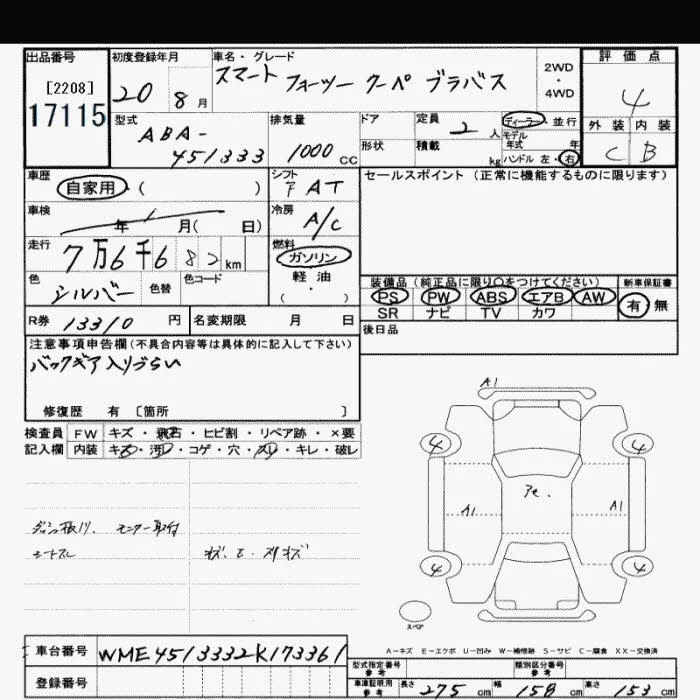 出品番号 初度登録年月 車名・グレード 評価点
[2208] 20 8月 スマート フォーツー クーペ ブラバス 2WD・4WD 4
17115 型式 排気量 ドア 定員 2人 ディーラー・並行 外装 内装
ABA-451333 1000cc 形状 積載 kg モデル年式 年 ハンドル 左・右 C B
車歴 自家用・( ) シフト FAT セールスポイント(正常に機能するものに限ります)
車検 年 月( 日) 冷房 A/C
走行 7万6千6 82 km 燃料 ガソリン
色 シルバー 色替 色コード 軽油 ( ・ )
装備品(純正品に限り○をつけてください) 新車保証書
PS PW ABS エアB AW 有・無
SR ナビ TV カワ
R券 13310円 名変期限 月 日 後日品
注意事項申告欄(不具合内容等は具体的に記入して下さい)
バックギア入りづらい
修復歴 有 [箇所 ]
検査員 FW キズ・飛石・ヒビ割・リペア跡・×要
記入欄 内装 キズ・汚れ・コゲ・穴・スレ・キレ・破レ
A1
4 4
A1 A1
4 4
モニター取付
シートスレ
スペア
A-キズ E-エクボ U-凹み W-補修跡 S-サビ C-腐食 XX-交換済
車台番号 WME4513332K173361
登録番号
型式指定番号 参考 類別区分番号 参考
車庫証明用 参考 長さ 275cm 幅 158cm 高さ 153cm